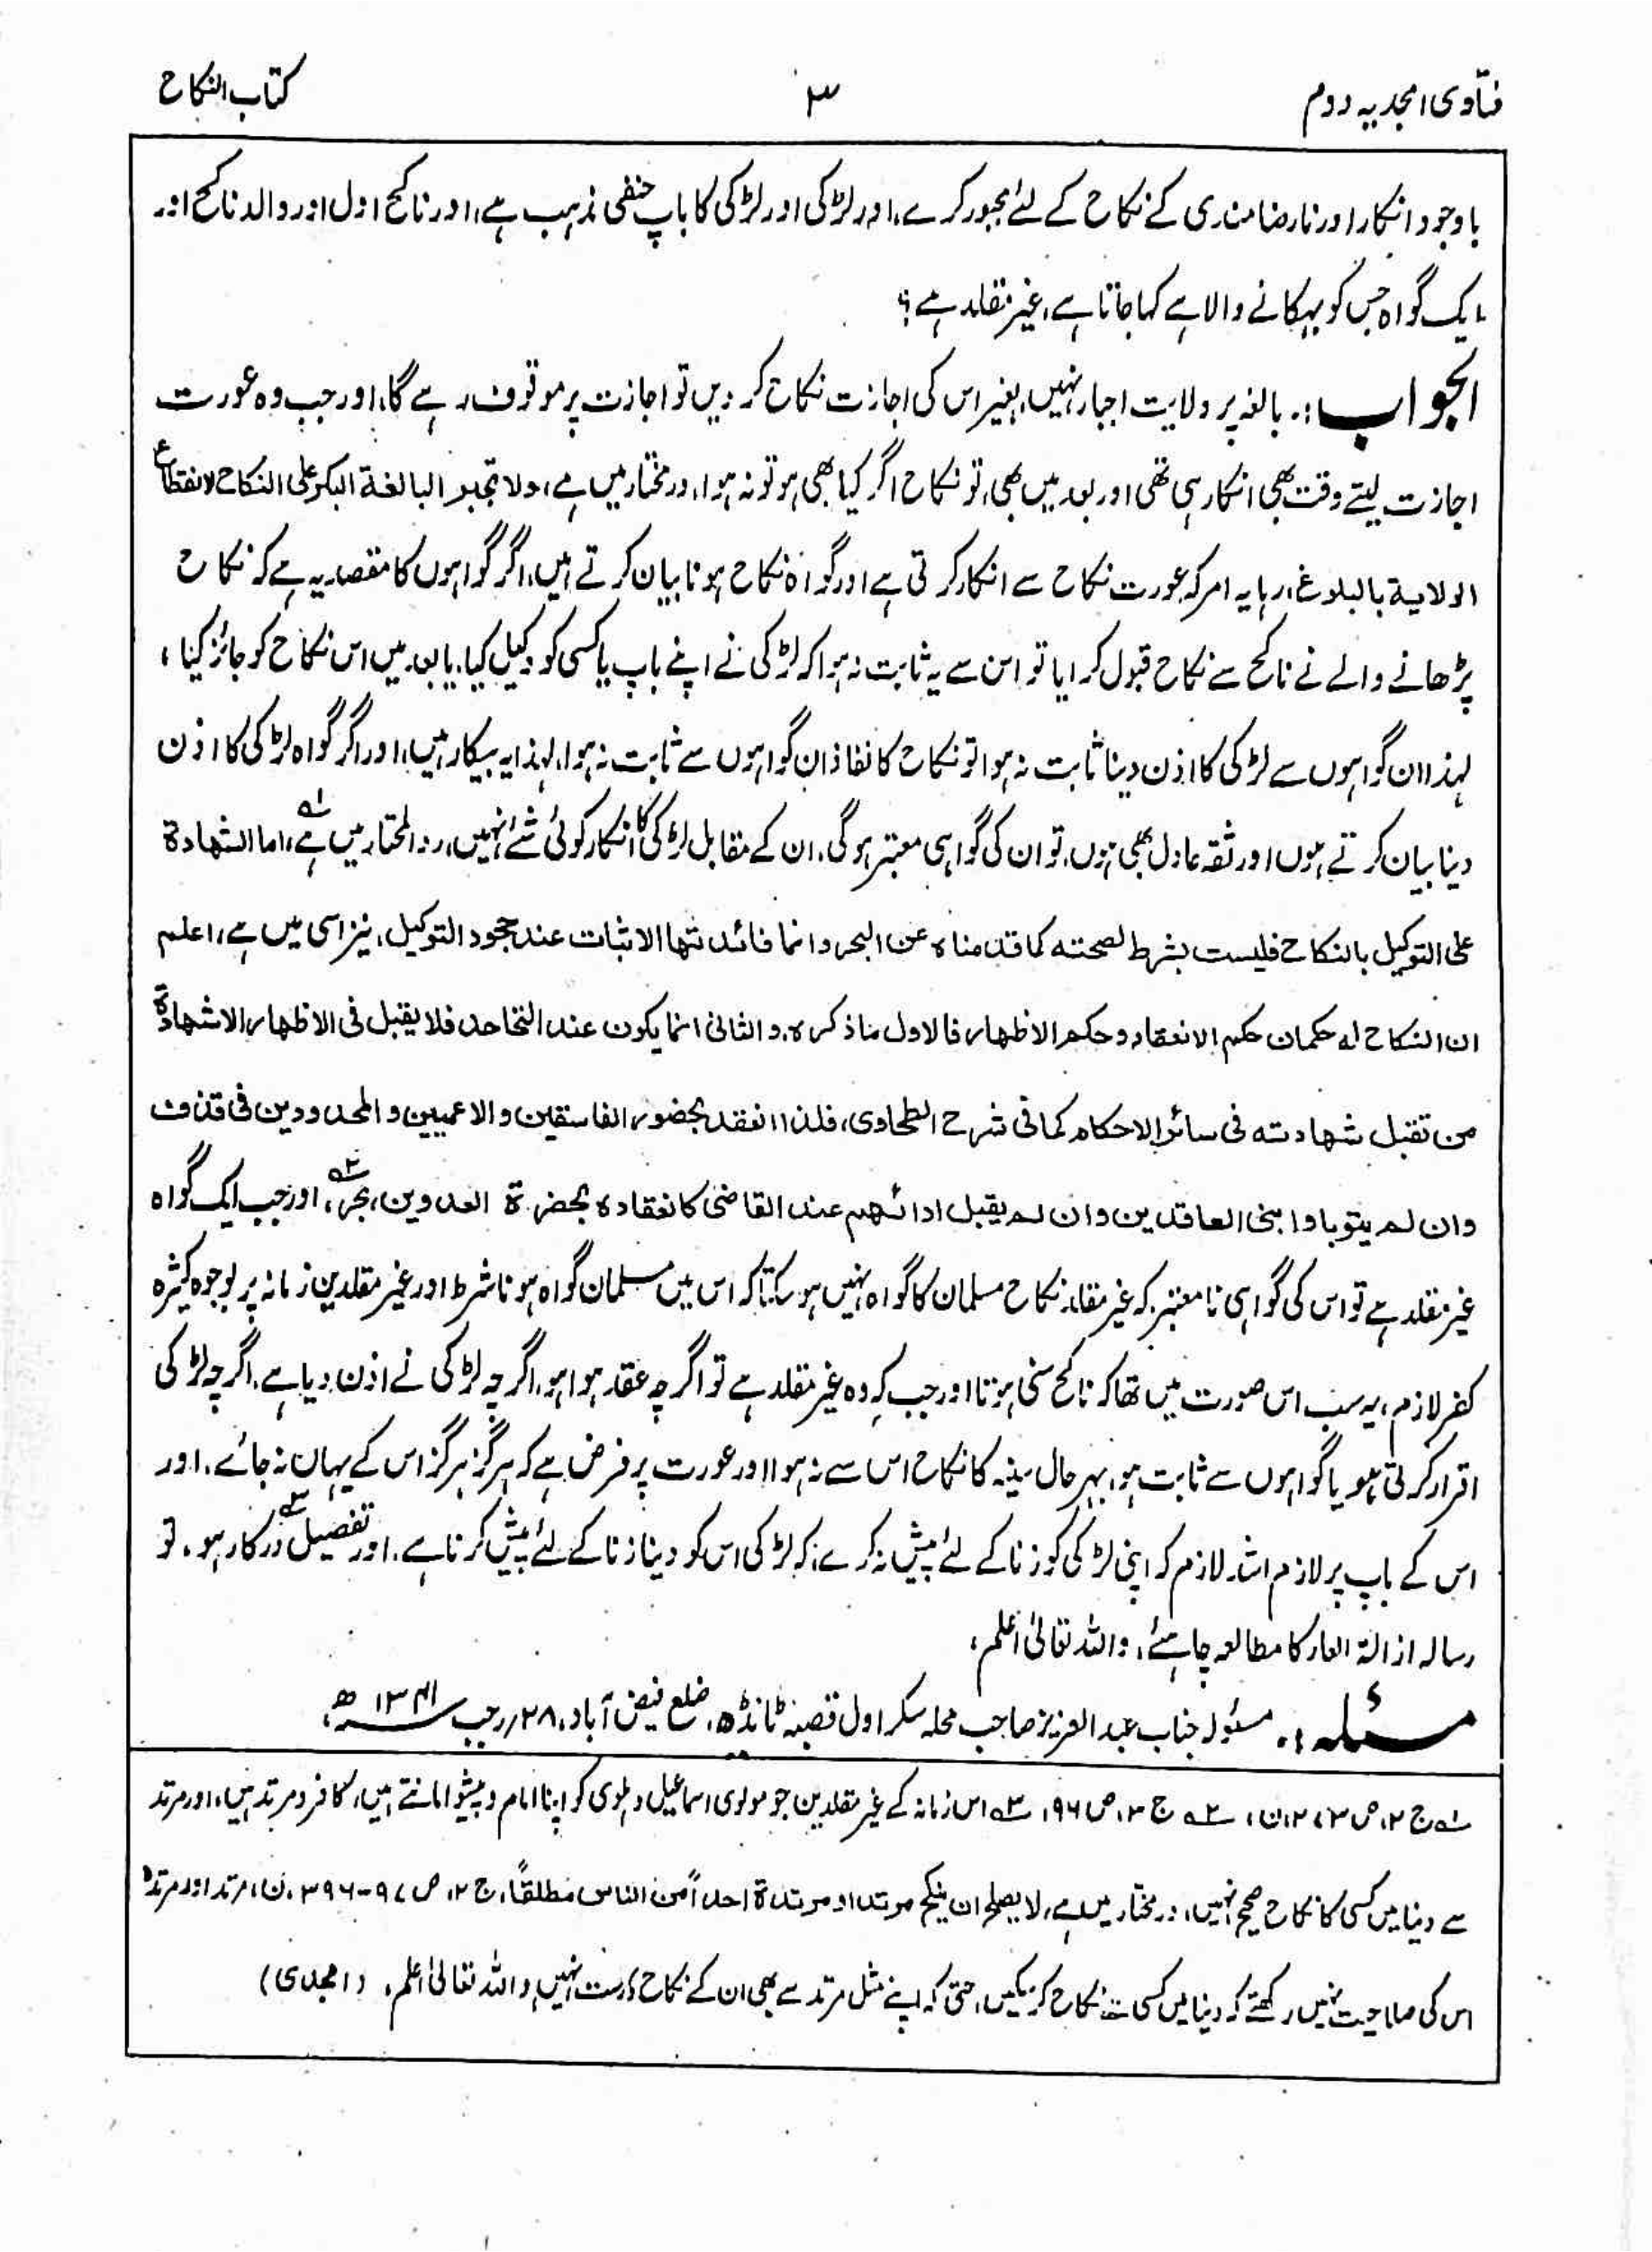 فتاوی امجدیہ دوم
۳
کتاب النکاح
باوجود انکار اور نارضامندی کے نکاح کے لئے مجبور کرے، اور لڑکی اور لڑکی کا باپ حنفی مذہب ہے، اور ناکح اول اور والد ناکح اور
ایک گواہ جس کو بہکانے والا ہے کہا جاتا ہے، غیر مقلد ہے؟
الجواب :۔ بالغہ پر ولایت اجبار نہیں، بغیر اس کی اجازت نکاح کر دیں تو اجازت پر موقوف رہے گا، اور جب وہ عورت
اجازت لیتے وقت بھی انکار ہی تھی اور بعد میں بھی، تو نکاح اگر کیا بھی ہو تو نہ ہوا، در مختار میں ہے، ولا تجبر البالغة البكر على النكاح لانقطاع
الولایة بالبلوغ، رہا یہ امر کہ عورت نکاح سے انکار کرتی ہے اور گواہ نکاح ہونا بیان کرتے ہیں، اگر گواہوں کا مقصد یہ ہے کہ نکاح
پڑھانے والے نے ناکح سے نکاح قبول کرایا تو اس سے یہ ثابت نہ ہوا کہ لڑکی نے اپنے باپ یا کسی کو وکیل کیا، یا بعد میں اس نکاح کو جائز کیا،
لہذا ان گواہوں سے لڑکی کا اذن دینا ثابت نہ ہوا تو نکاح کا نفاذ ان گواہوں سے ثابت نہ ہوا، لہذا یہ بیکار ہیں، اور اگر گواہ لڑکی کا اذن
دینا بیان کرتے ہوں اور ثقہ عادل بھی ہوں، تو ان کی گواہی معتبر ہوگی، ان کے مقابل لڑکی کا انکار کوئی شئے نہیں، رد المحتار میں ہے،۱؎ اما الشهادة
على التوكيل بالنكاح فليست بشرط لصحته كما قدمناه عن البحر وانما فائدتها الاثبات عند جحود التوكيل، نیز اسی میں ہے، اعلم
ان النكاح له حكمان حكم الانعقاد وحكم الاظهار فالاول ماذكره، والثانى انما يكون عند التجاحد فلا يقبل فى الاظهار الا شهادة
من تقبل شهادته فى سائر الاحكام كما فى شرح الطحاوى، فلذا انعقد بحضور الفاسقين والاعميين والمحدودين فى قذف
وان لم يتوبا وابنى العاقدين وان لم يقبل ادائهم عند القاضى كانعقاده بحضرة العدوين، بحر،۲؎ اور جب ایک گواہ
غیر مقلد ہے تو اس کی گواہی نا معتبر کہ غیر مقلد نکاح مسلمان کا گواہ نہیں ہو سکتا کہ اس میں مسلمان گواہ ہونا شرط اور غیر مقلدین زمانہ پر بوجوہ کثیرہ
کفر لازم، یہ سب اس صورت میں تھا کہ ناکح سنی ہوتا اور جب کہ وہ غیر مقلد ہے تو اگرچہ عقد ہوا ہو، اگرچہ لڑکی نے اذن دیا ہے، اگرچہ لڑکی
اقرار کرتی ہو یا گواہوں سے ثابت ہو، بہر حال سنیہ کا نکاح اس سے نہ ہوا اور عورت پر فرض ہے کہ ہرگز ہرگز اس کے یہاں نہ جائے، اور
اس کے باپ پر لازم اشد لازم کہ اپنی لڑکی کو زنا کے لئے پیش نہ کرے، کہ لڑکی اس کو دینا زنا کے لئے پیش کرنا ہے، اور تفصیل۳؎ درکار ہو، تو
رسالہ ازالۃ العار کا مطالعہ چاہئے، واللہ تعالیٰ اعلم،
مسئلہ :۔ مسئولہ جناب عبد العزیز صاحب محلہ سکراول قصبہ ٹانڈہ، ضلع فیض آباد، ۲۸؍ رجب ۱۳۴۱ھ،
۱؎ ج ۲، ص ۳۷۳، ن، ۲؎ ج ۳، ص ۹۶، ۳؎ اس زمانہ کے غیر مقلدین جو مولوی اسماعیل دہلوی کو اپنا امام و پیشوا مانتے ہیں، کافر و مرتد ہیں، اور مرتد
سے دنیا میں کسی کا نکاح صحیح نہیں، در مختار میں ہے، لا يصلح ان ينكح مرتد او مرتدة احداً من الناس مطلقاً، ج ۲، ص ۹۷-۳۹۶، ن، مرتد اور مرتدہ
اس کی صلاحیت نہیں رکھتے کہ دنیا میں کسی سے نکاح کر سکیں، حتی کہ اپنے مثل مرتد سے بھی ان کے نکاح درست نہیں، واللہ تعالیٰ اعلم، (امجدی)